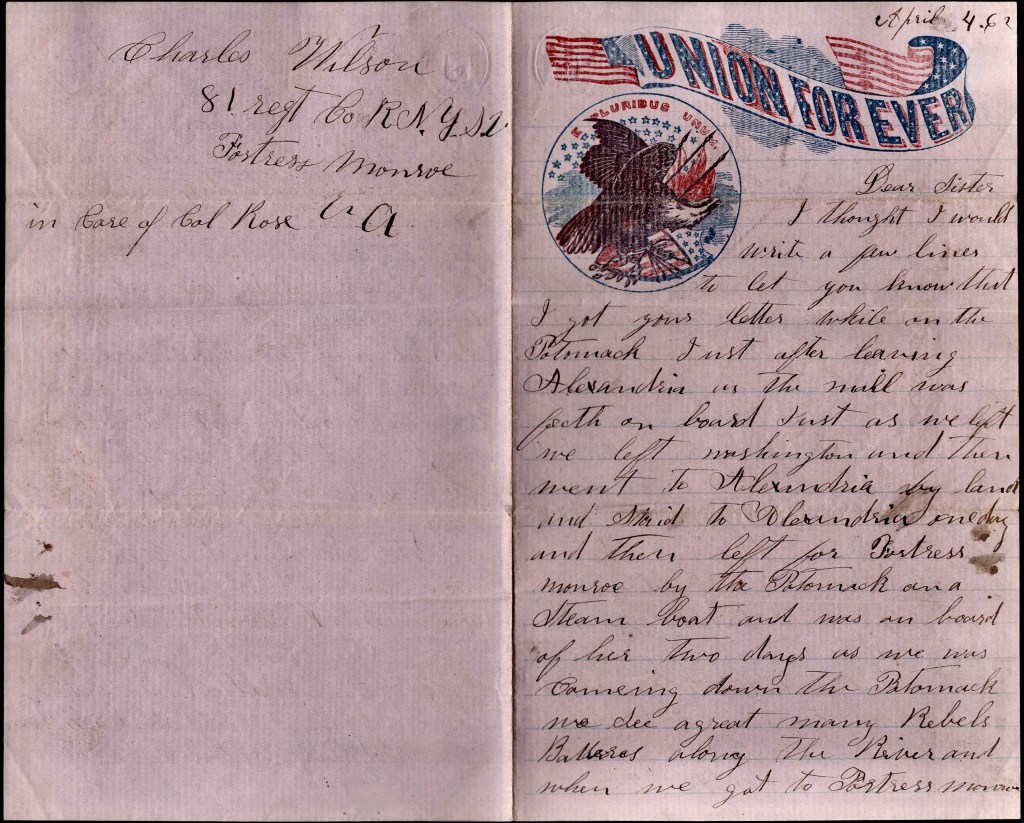 Charles Wilson
81 regt Co K N.Y.S.V
Fortress Monroe
Va
in Care of Col Rose
April 4. 62
UNION FOR EVER
E PLURIBUS UNUM.
Dear Sister
I thought I would
write a faw lines
to let you know that
I got your letter while on the
Potomack Just after leaving
Alexandria as the mail was
fecth on board Just as we left
we left washington and then
went to Alexandria by land
and Staid to Alexandria one day
and then left for Fortress
monroe by the Potomack on a
Steam boat and was on board
of her two days as we was
Comeing down the Potomack
we see a great many Rebels
Batteres along the River and
when we got to Fortress monroe